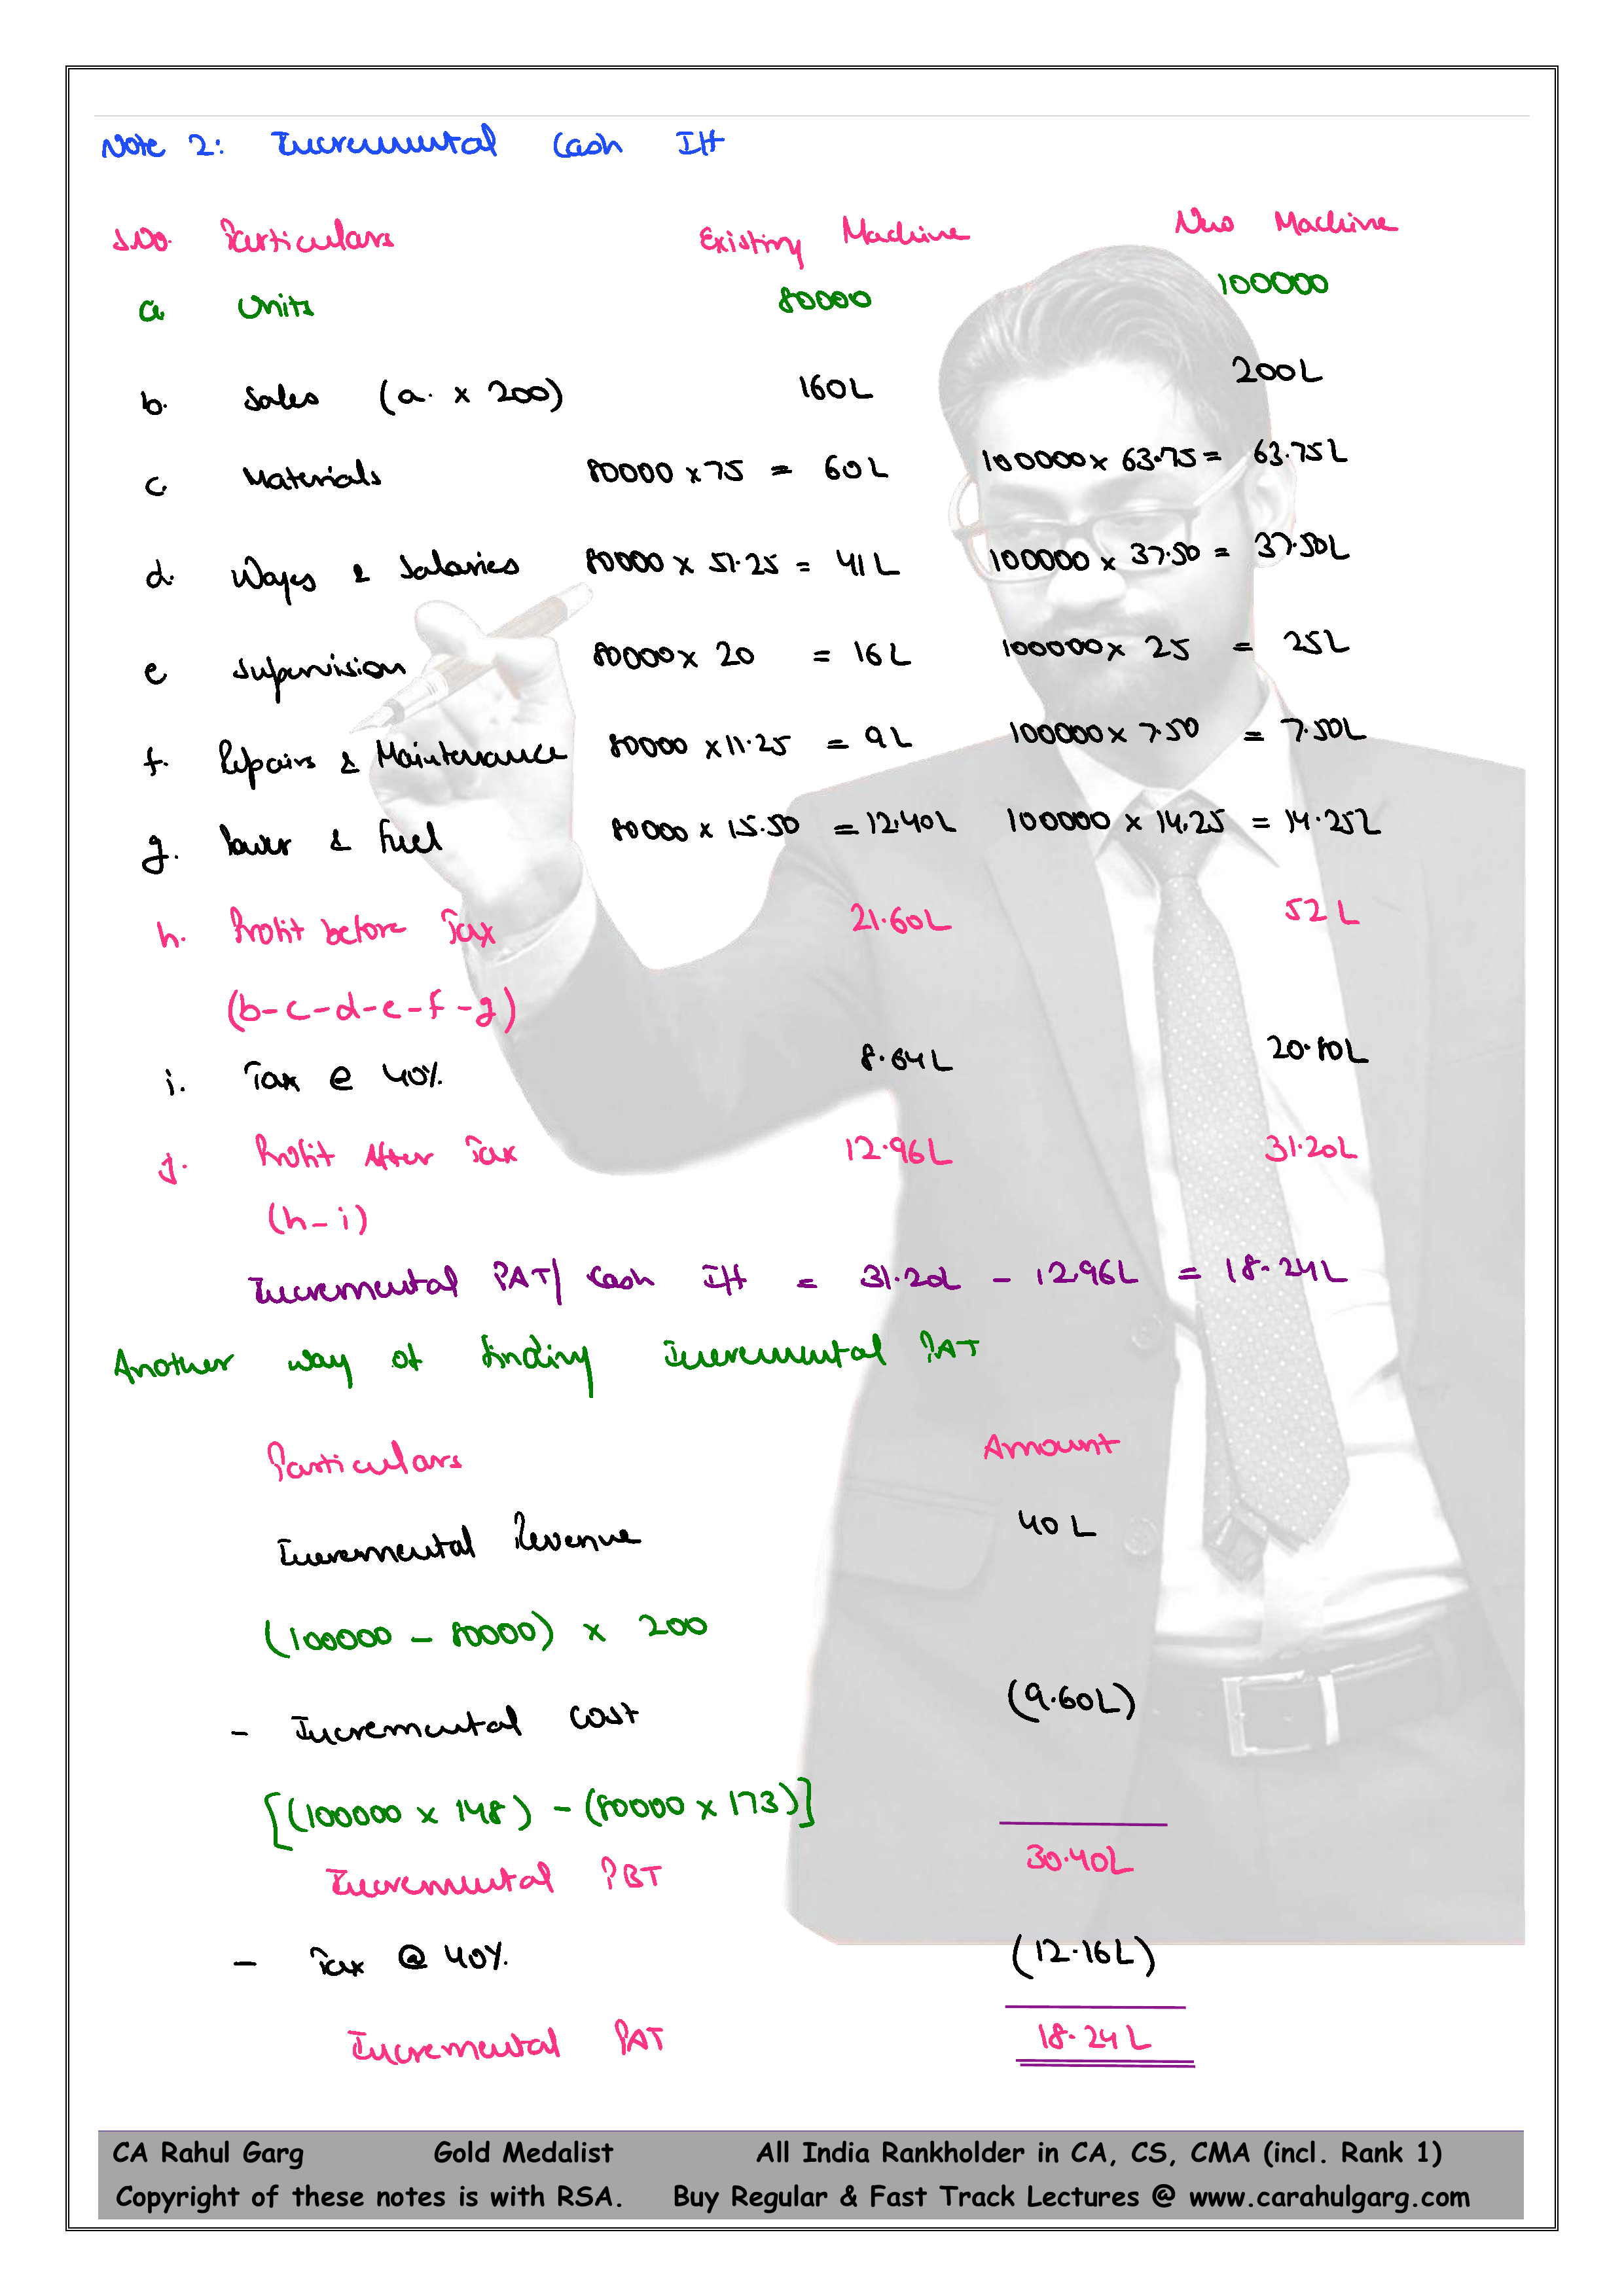 Note 2: Incremental Cash I/f
S.No. Particulars Existing Machine New Machine
a Units 80000 100000
b. Sales (a. x 200) 160L 200L
c. Materials 80000 x 75 = 60L 100000 x 63.75 = 63.75L
d. Wages & Salaries 80000 x 51.25 = 41L 100000 x 37.50 = 37.50L
e Supervision 80000 x 20 = 16L 100000 x 25 = 25L
f. Repairs & Maintenance 80000 x 11.25 = 9L 100000 x 7.50 = 7.50L
g. Power & Fuel 80000 x 15.50 = 12.40L 100000 x 14.25 = 14.25L
h. Profit before Tax 21.60L 52L
(b-c-d-e-f-g)
i. Tax @ 40% 8.64L 20.80L
j. Profit After Tax 12.96L 31.20L
(h-i)
Incremental PAT/ Cash I/f = 31.20L - 12.96L = 18.24L
Another way of finding Incremental PAT
Particulars Amount
Incremental Revenue 40L
(100000 - 80000) x 200
- Incremental Cost (9.60L)
[(100000 x 148) - (80000 x 173)]
Incremental PBT 30.40L
- Tax @ 40% (12.16L)
Incremental PAT 18.24L
CA Rahul Garg Gold Medalist All India Rankholder in CA, CS, CMA (incl. Rank 1)
Copyright of these notes is with RSA. Buy Regular & Fast Track Lectures @ www.carahulgarg.com